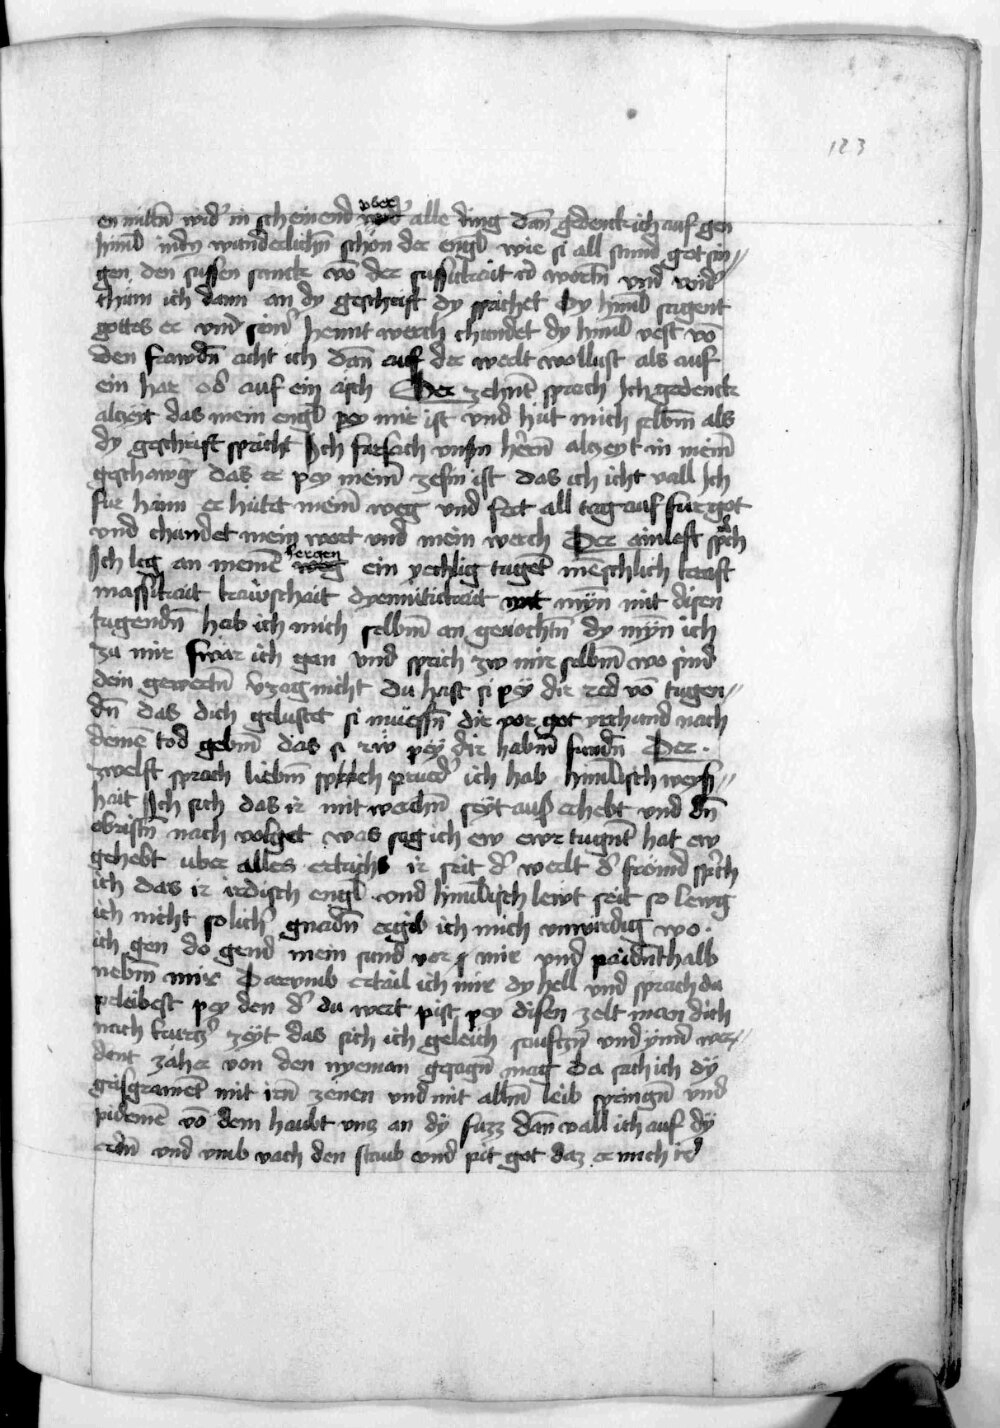 123
en mitñ wid' in scheinend vber alle ding dañ gedenck ich auf gen
himl in dy wunderlichñ schon der engl wie si all stund got sin=
gen den sussen sanck vō der sussikait ir wortñ vnd wid'
chum ich dann an dy geschrift dy sprichet Dy himl sagent
gottes er vnd sein' hennt werch chundet dy himl vest vō
den frawdñ acht ich dañ auf der werlt wollust als auf
ein har od' auf ein asch Der zehnt sprach Ich gedenck
alczeit das mein engl pey mir ist vnd hüt mich selbm als
dy geschrift spricht Ich fursach vnsn herrñ alczeyt in meim
geschawg das er pey meim zesm ist das ich icht vall Ich
fur hainn er hütet meim weg vnd fert all tag auf fur got
vnd chundet mein wort vnd mein werch Der ainleft sprch
Ich leg an meinē herczen ein yechlig tuget meschlich kraft
massikait kawschait dyemutikait mit mỹn mit disen
tugendñ hab ich mich selbm an gevochtñ dy mỹn ich
zu mir swar ich gan vnd sprich zw mir selbm wo sind
dein gevertñ v̄zag nicht du hast si pëy dir red vō tugen=
dñ das dich gelustet si müessñ dir vor got vrchund nach
deinē tod gebm das si rw pëy dir habm fundñ Der
zwelft sprach liebm sprch prued' ich hab himlisch weyß=
hait Ich sich das ir mit werchñ seyt auß erhebt vnd dñ
obristñ nach volget was sag ich ew ewr tugnt hat ew
gehebt vber alles ertrichs ir seit d' werlt d' frömd sprch
ich das ir irdisch engl vnd himlisch lewt seit so lewg
ich nicht solich' gnadñ ergib ich mich vnwirdig wo
ich gen do gend mein sund vor mir vnd paidñthalb
nebm mir Darvmb ertail ich mir dy hell vnd sprach du
peleibest pey den d' du wert pist pey disen zelt man dich
nach kurcz' zëyt das sich ich geleich seufczñ vnd ymm' we=
dent zäher von den nyeman gesagñ mag Da sich ich dÿ
grisgramet mit irñ zenen vnd mit allm leib springñ vnd
pidemē vō dem haubt vncz an dÿ fuzz dañ vall ich auf dÿ
erdñ vnd vmb vach den staub vnd pit got daz er mich ir'